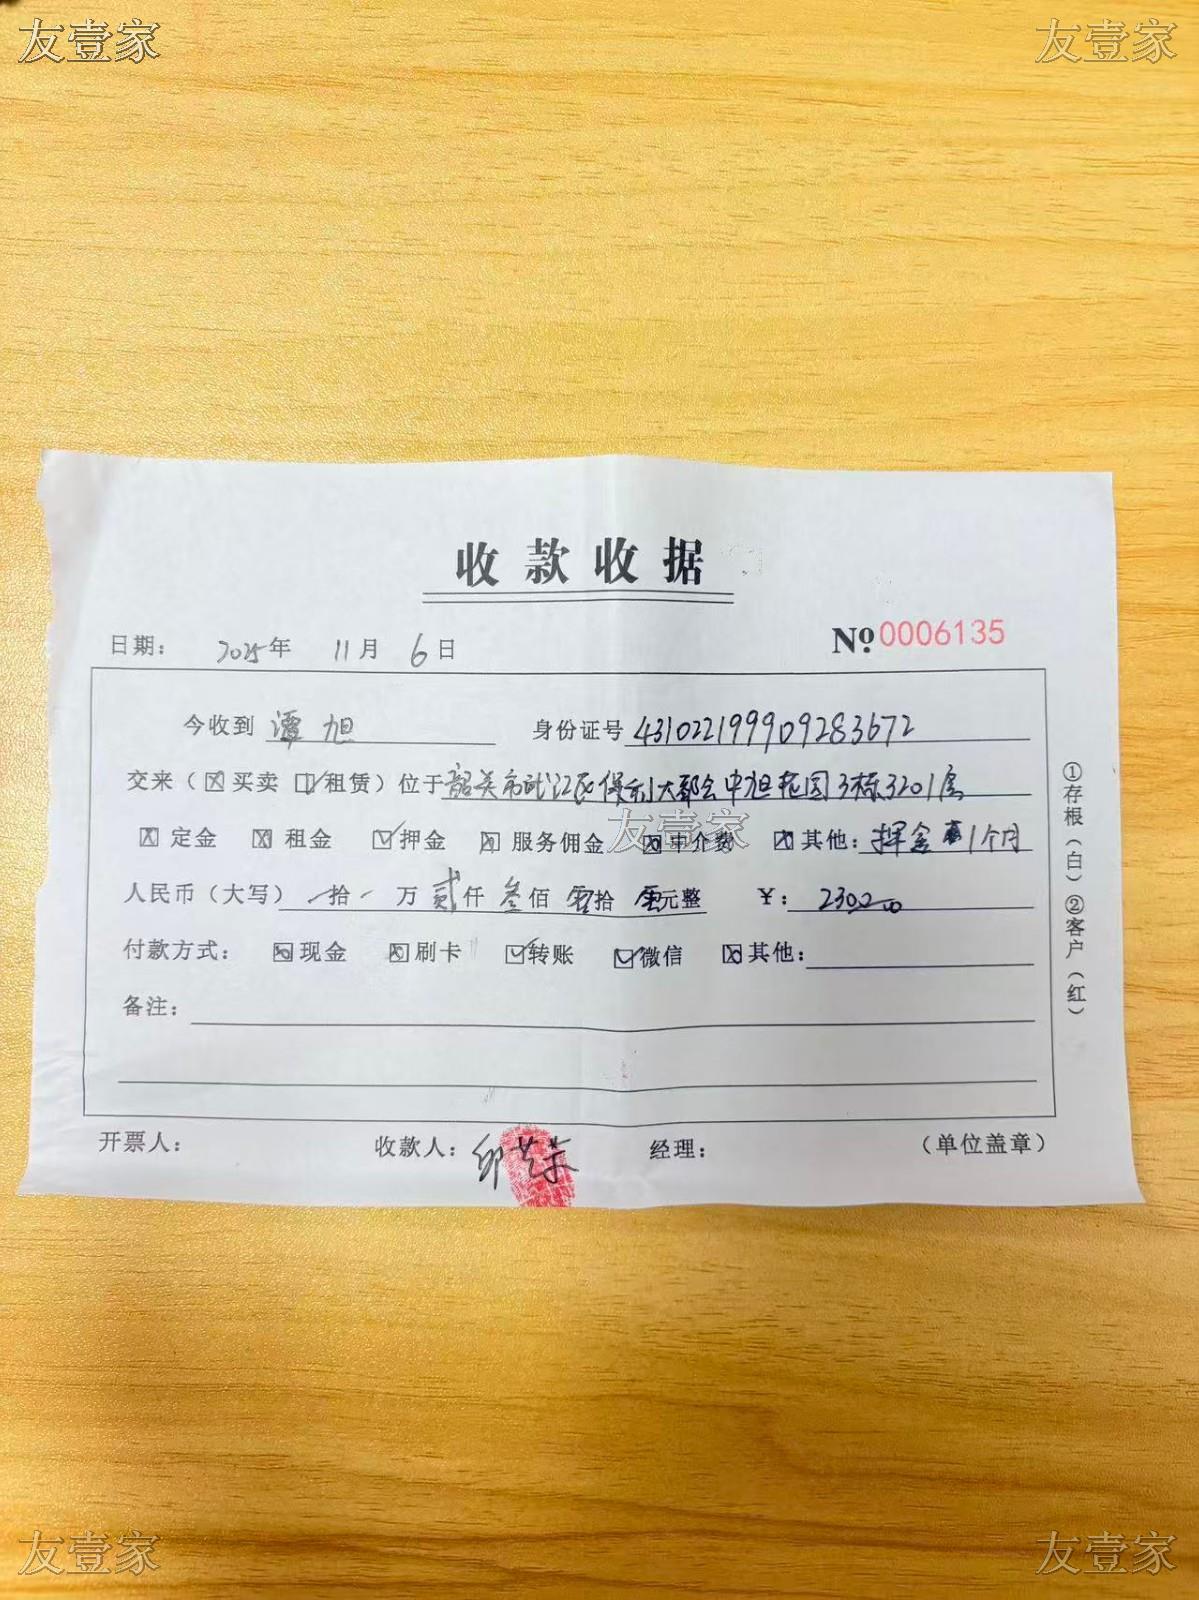 友壹家 友壹家
收款收据
日期： 2025年 11月 6日 №0006135
今收到 谭旭 身份证号 431022199909283672
交来（☒买卖 ☑租赁）位于韶关市武江区保利大都会中旭花园3栋3201房
☒定金 ☒租金 ☑押金 ☒服务佣金 ☒中介费 ☒其他：押金 1个月
友壹家
人民币（大写） 拾 万 贰仟 叁佰 零拾 零元整 ￥： 2300.00
付款方式： ☒现金 ☒刷卡 ☑转账 ☑微信 ☒其他：
备注：
开票人： 收款人：邱 经理： （单位盖章）
①存根（白）②客户（红）
友壹家 友壹家